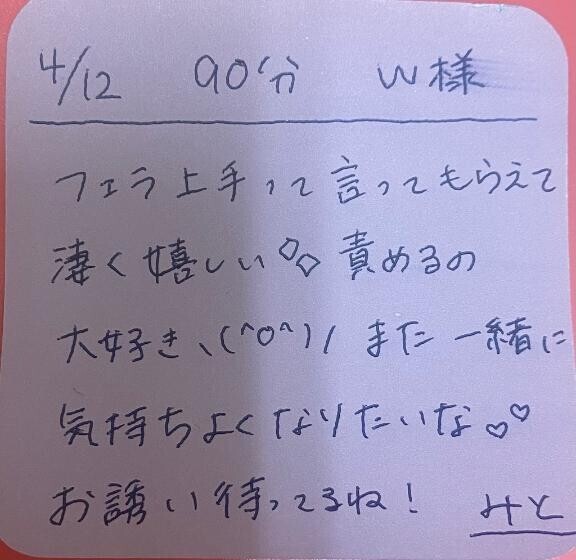 4/12 90分 W様
フェラ上手って言ってもらえて
凄く嬉しい♡♡ 責めるの
大好き、(^o^)/ また一緒に
気持ちよくなりたいな♡♡
お誘い待ってるね!
みと